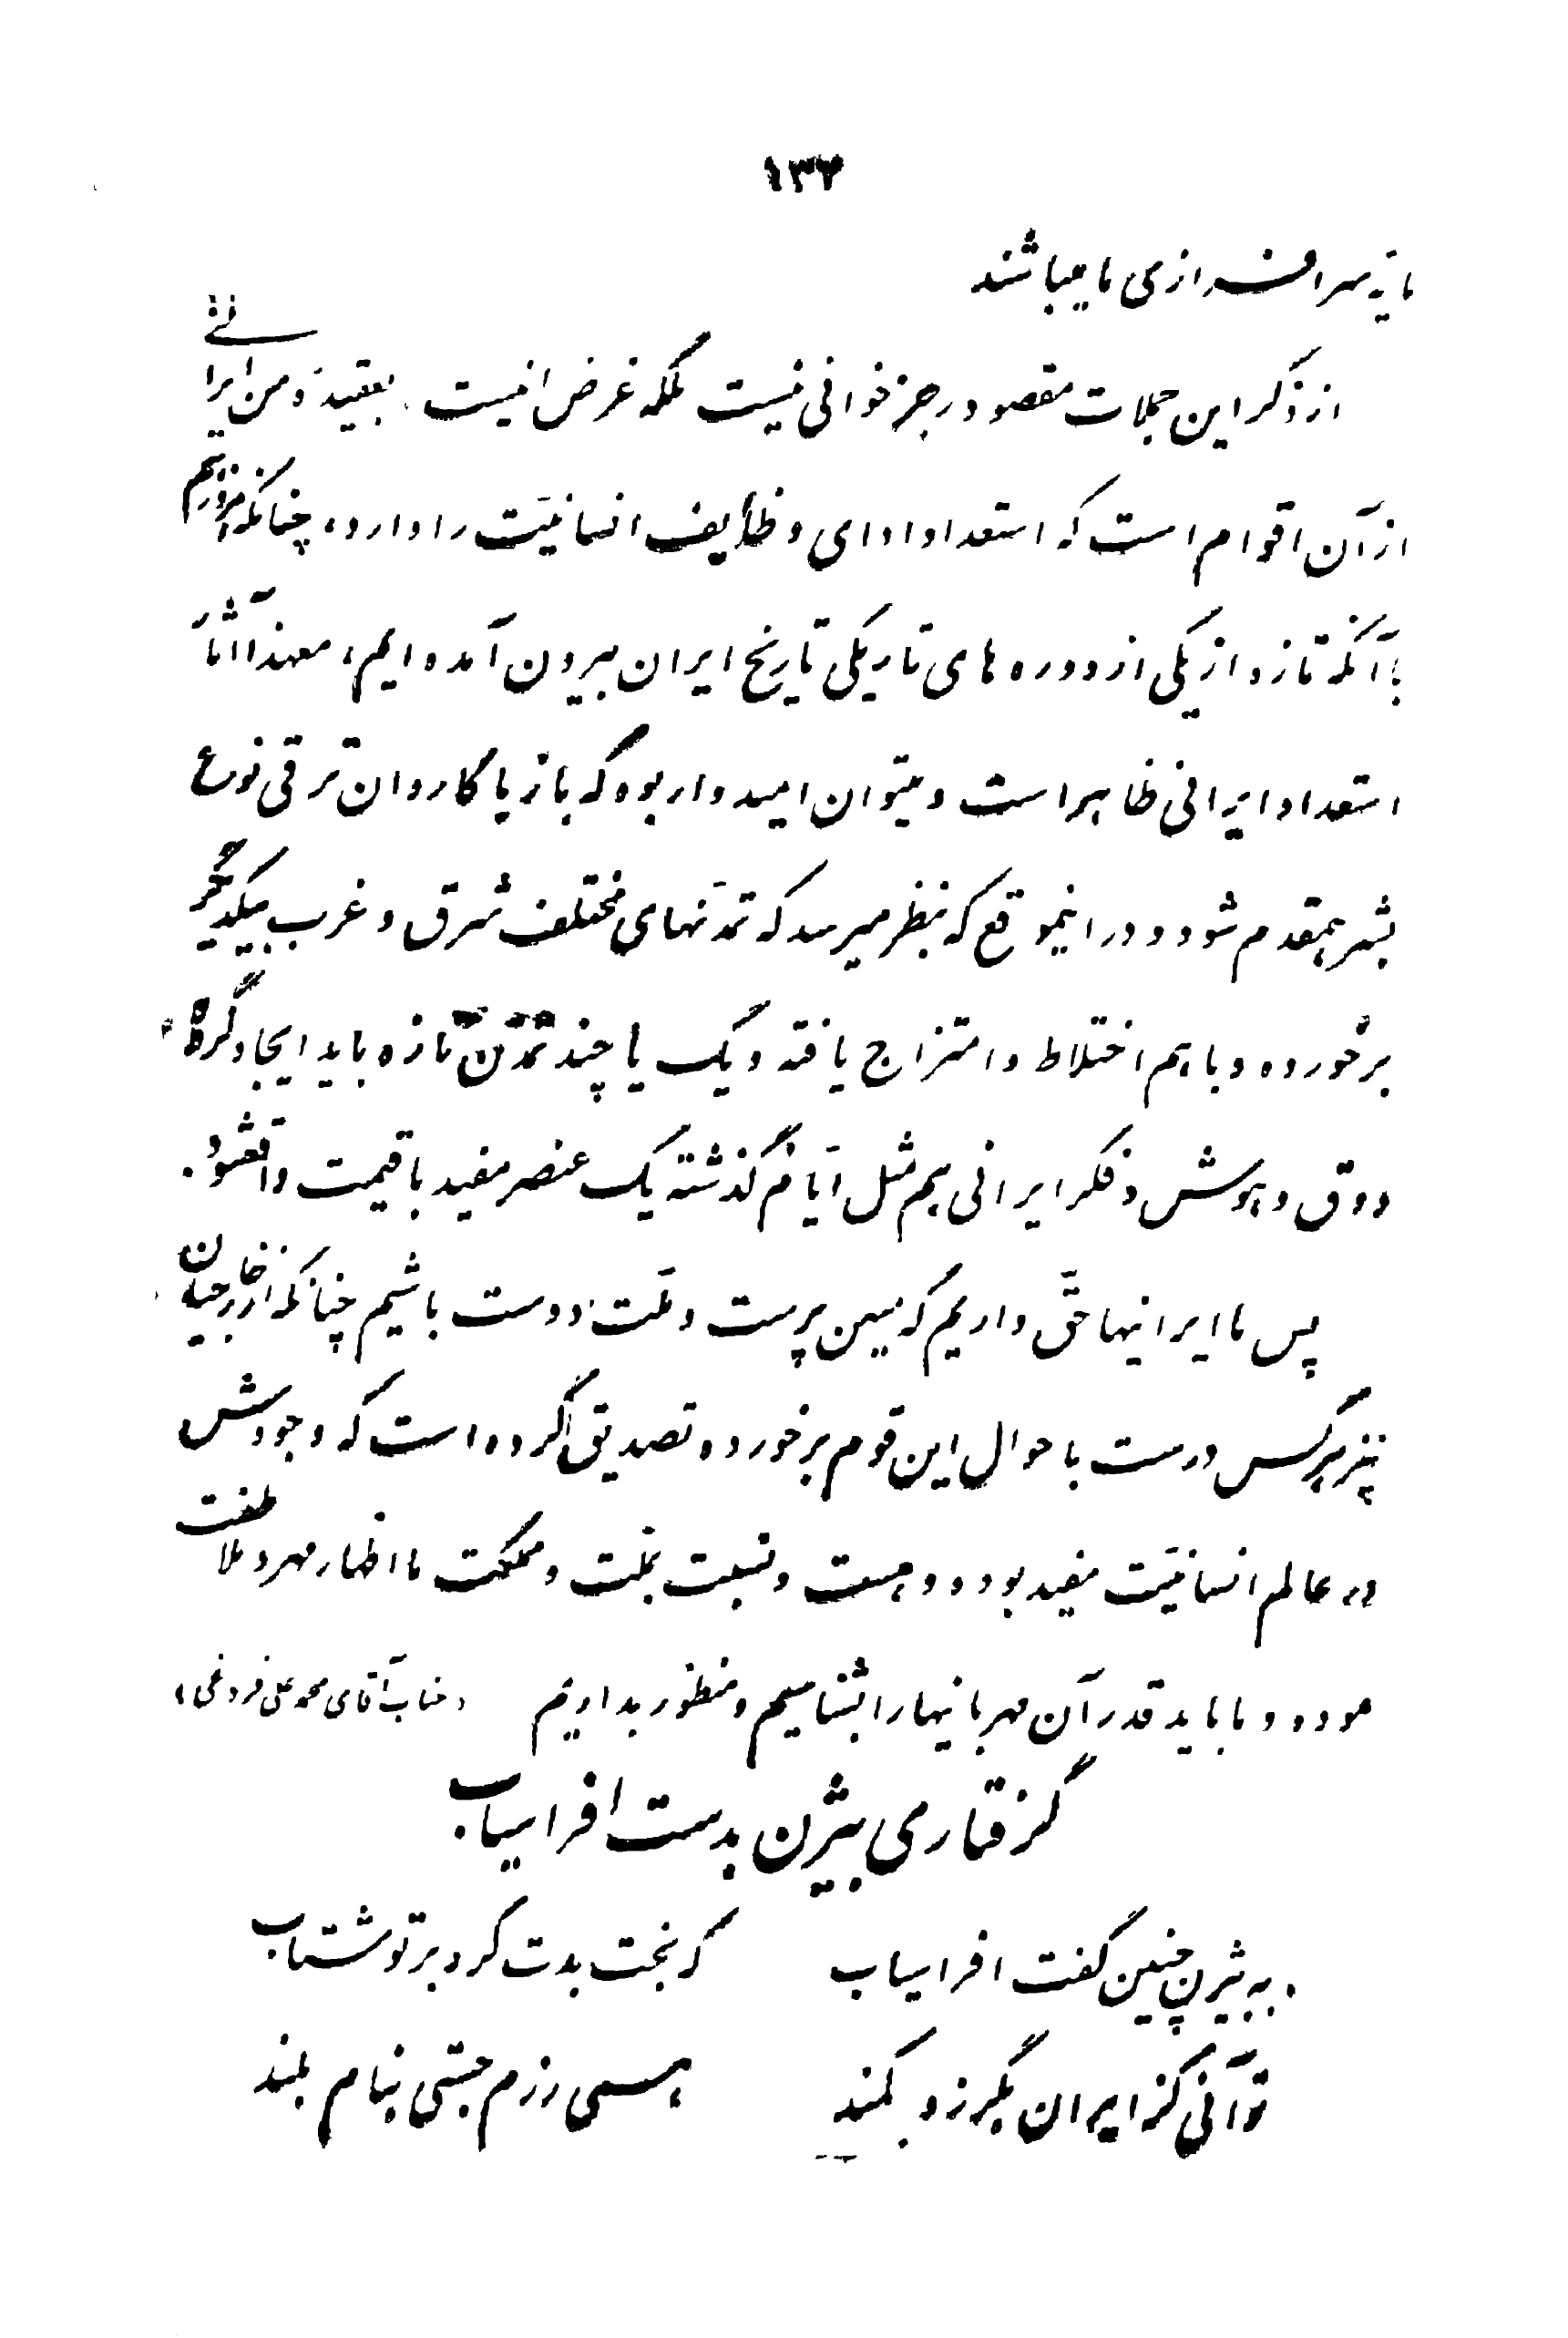 ۱۳۲
مایهٔ سرافرازی ما میباشند
از ذکر این جملات مقصود رجز خوانی نیست بلکه غرض اینست بعقیدهٔ من ایرانی
از آن اقوام است که استعداد ادای وظایف انسانیّت را دارد، چنانکه امروز هم
با آنکه تازه از یکی از دوره های تاریکی تاریخ ایران بیرون آمده ایم، معهذا آثار
استعداد ایرانی ظاهر است و میتوان امیدوار بود که باز با کاروان ترقی نوع
بشر همقدم شود و در اینموقع که بنظر میرسد که تمدّنهای مختلف شرق و غرب بیکدیگر
برخورده و باهم اختلاط و امتزاج یافته و یک یا چند تمدّن تازه باید ایجاد گردد،
ذوق و هوش و فکر ایرانی هم مثل ایّام گذشته یک عنصر مفید با قیمت واقعشود.
پس ما ایرانیها حقّ داریم که میهن پرست و ملّت دوست باشیم چنانکه از خارجیان
نیز هرکس درست باحوال این قوم برخورده تصدیق کرده است که وجودش
در عالم انسانیّت مفید بوده و هست و نسبت بملّت و مملکت ما اظهار مهر و ملاطفت
نموده و ما باید قدر آن مهربانیها را بشناسیم و منظور بداریم (جناب آقای محمد علی فروغی)
گرفتاری بیژن بدست افراسیاب
به بیژن چنین گفت افراسیاب که بخت بدت کرد بر تو شتاب
تو آنی کز ایران بگرز و کمند همی رزم جستی بنام بلند